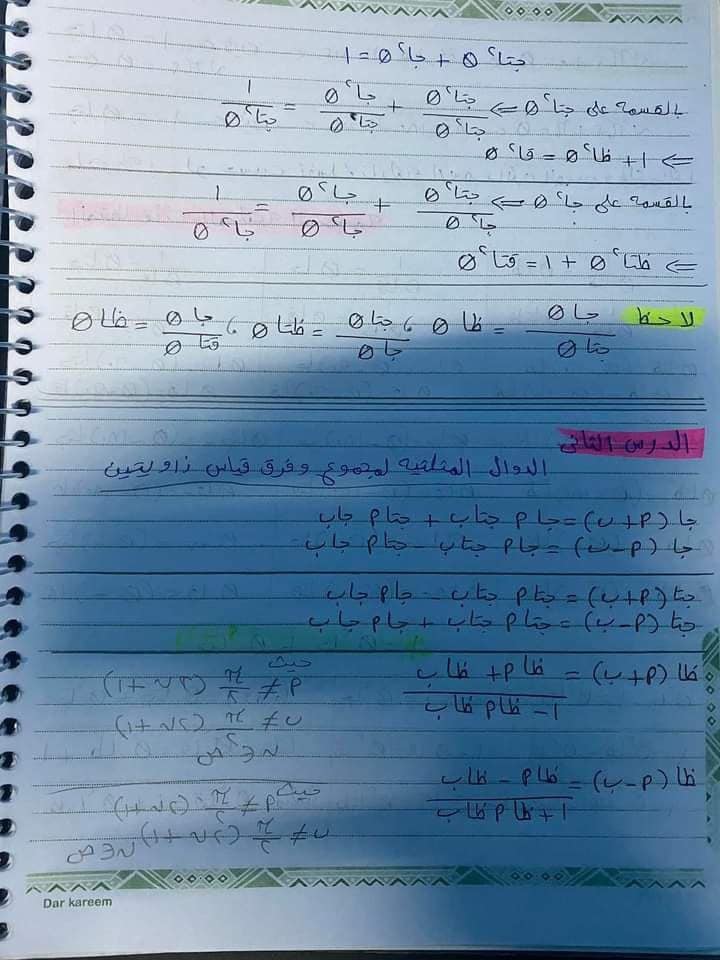 جتا²θ + جا²θ = 1
بالقسمة على جتا²θ ⇐ جتا²θ/جتا²θ + جا²θ/جتا²θ = 1/جتا²θ
⇐ 1 + ظا²θ = قا²θ
بالقسمة على جا²θ ⇐ جتا²θ/جا²θ + جا²θ/جا²θ = 1/جا²θ
⇐ ظتا²θ + 1 = قتا²θ
لاحظ جاθ/جتاθ = ظاθ ، جتاθ/جاθ = ظتاθ ، جاθ/قتاθ = ظاθ
الدرس الثانى
الدوال المثلثية لمجموع وفرق قياس زاويتين
جا (م+ب) = جام جتاب + جتام جاب
جا (م-ب) = جام جتاب - جتام جاب
جتا (م+ب) = جتام جتاب - جام جاب
جتا (م-ب) = جتام جتاب + جام جاب
ظا (م+ب) = ظام + ظاب / 1 - ظام ظاب
حيث م ≠ π/2 (2ن+1)
ب ≠ π/2 (2ن+1)
ن∈ص
ظا (م-ب) = ظام - ظاب / 1 + ظام ظاب
حيث م ≠ π/2 (2ن+1)
ب ≠ π/2 (2ن+1) ن∈ص
Dar kareem